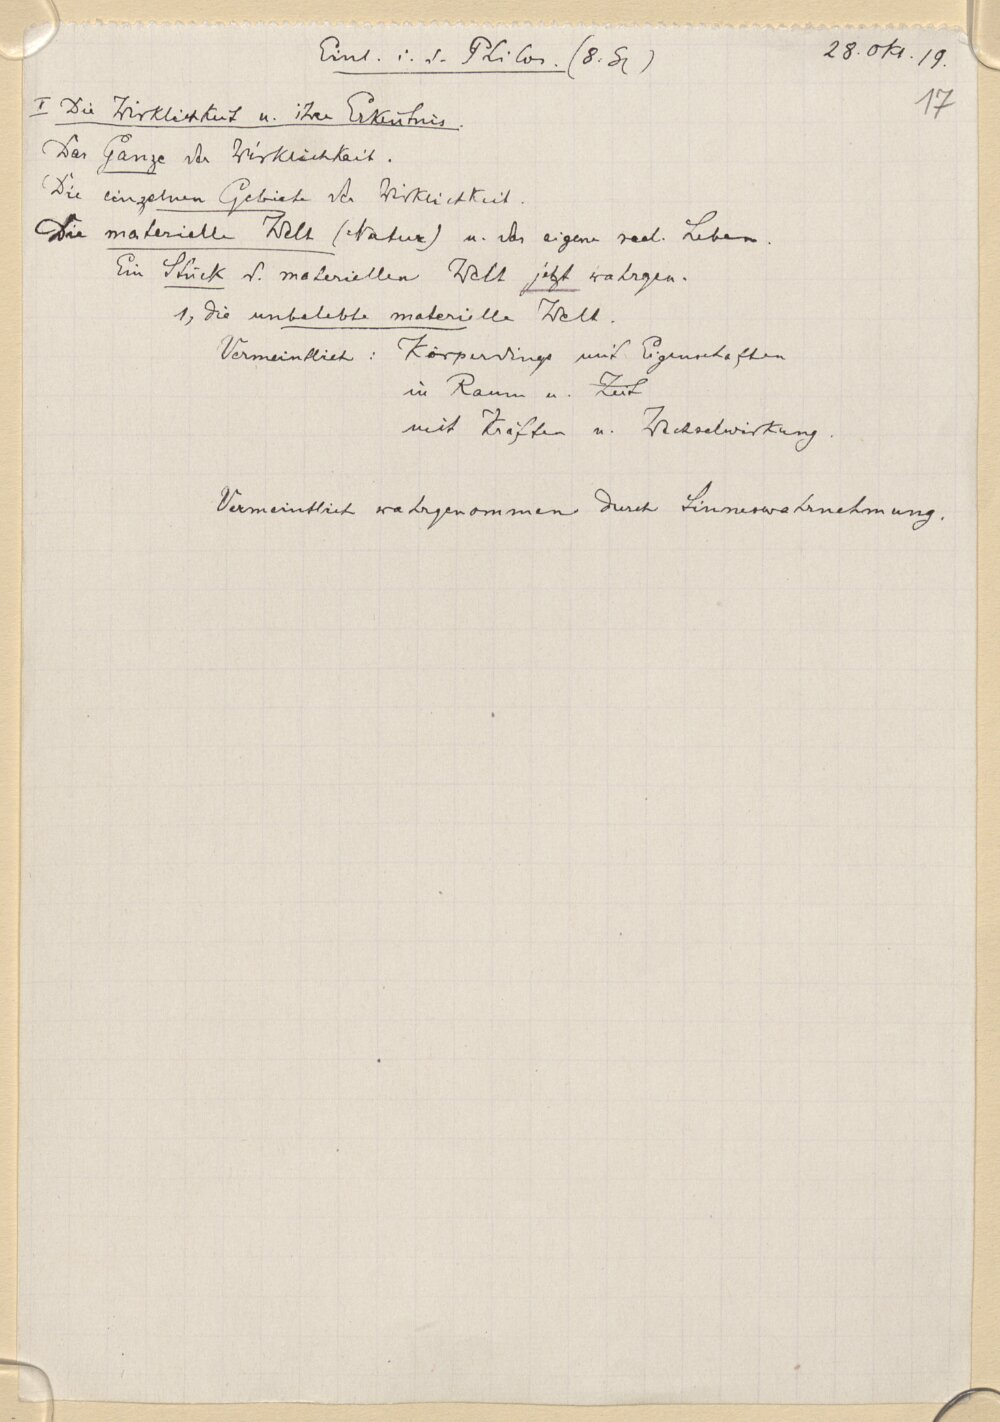 Einl. i. d. Philos. (8. St) 28. Okt. 19.
17
I Die Wirklichkeit u. ihre Erkentnis.
Das Ganze der Wirklichkeit.
Die einzelnen Gebiete der Wirklichkeit.
Die materielle Welt (Natur) u. das eigene seel. Leben.
Ein Stück d. materiellen Welt jetzt wahrgen.
1, die unbelebte materielle Welt.
Vermeintlich : Körperdinge mit Eigenschaften
in Raum u. Zeit
mit Kräften u. Wechselwirkung.
Vermeintlich wahrgenommen durch Sinneswahrnehmung.